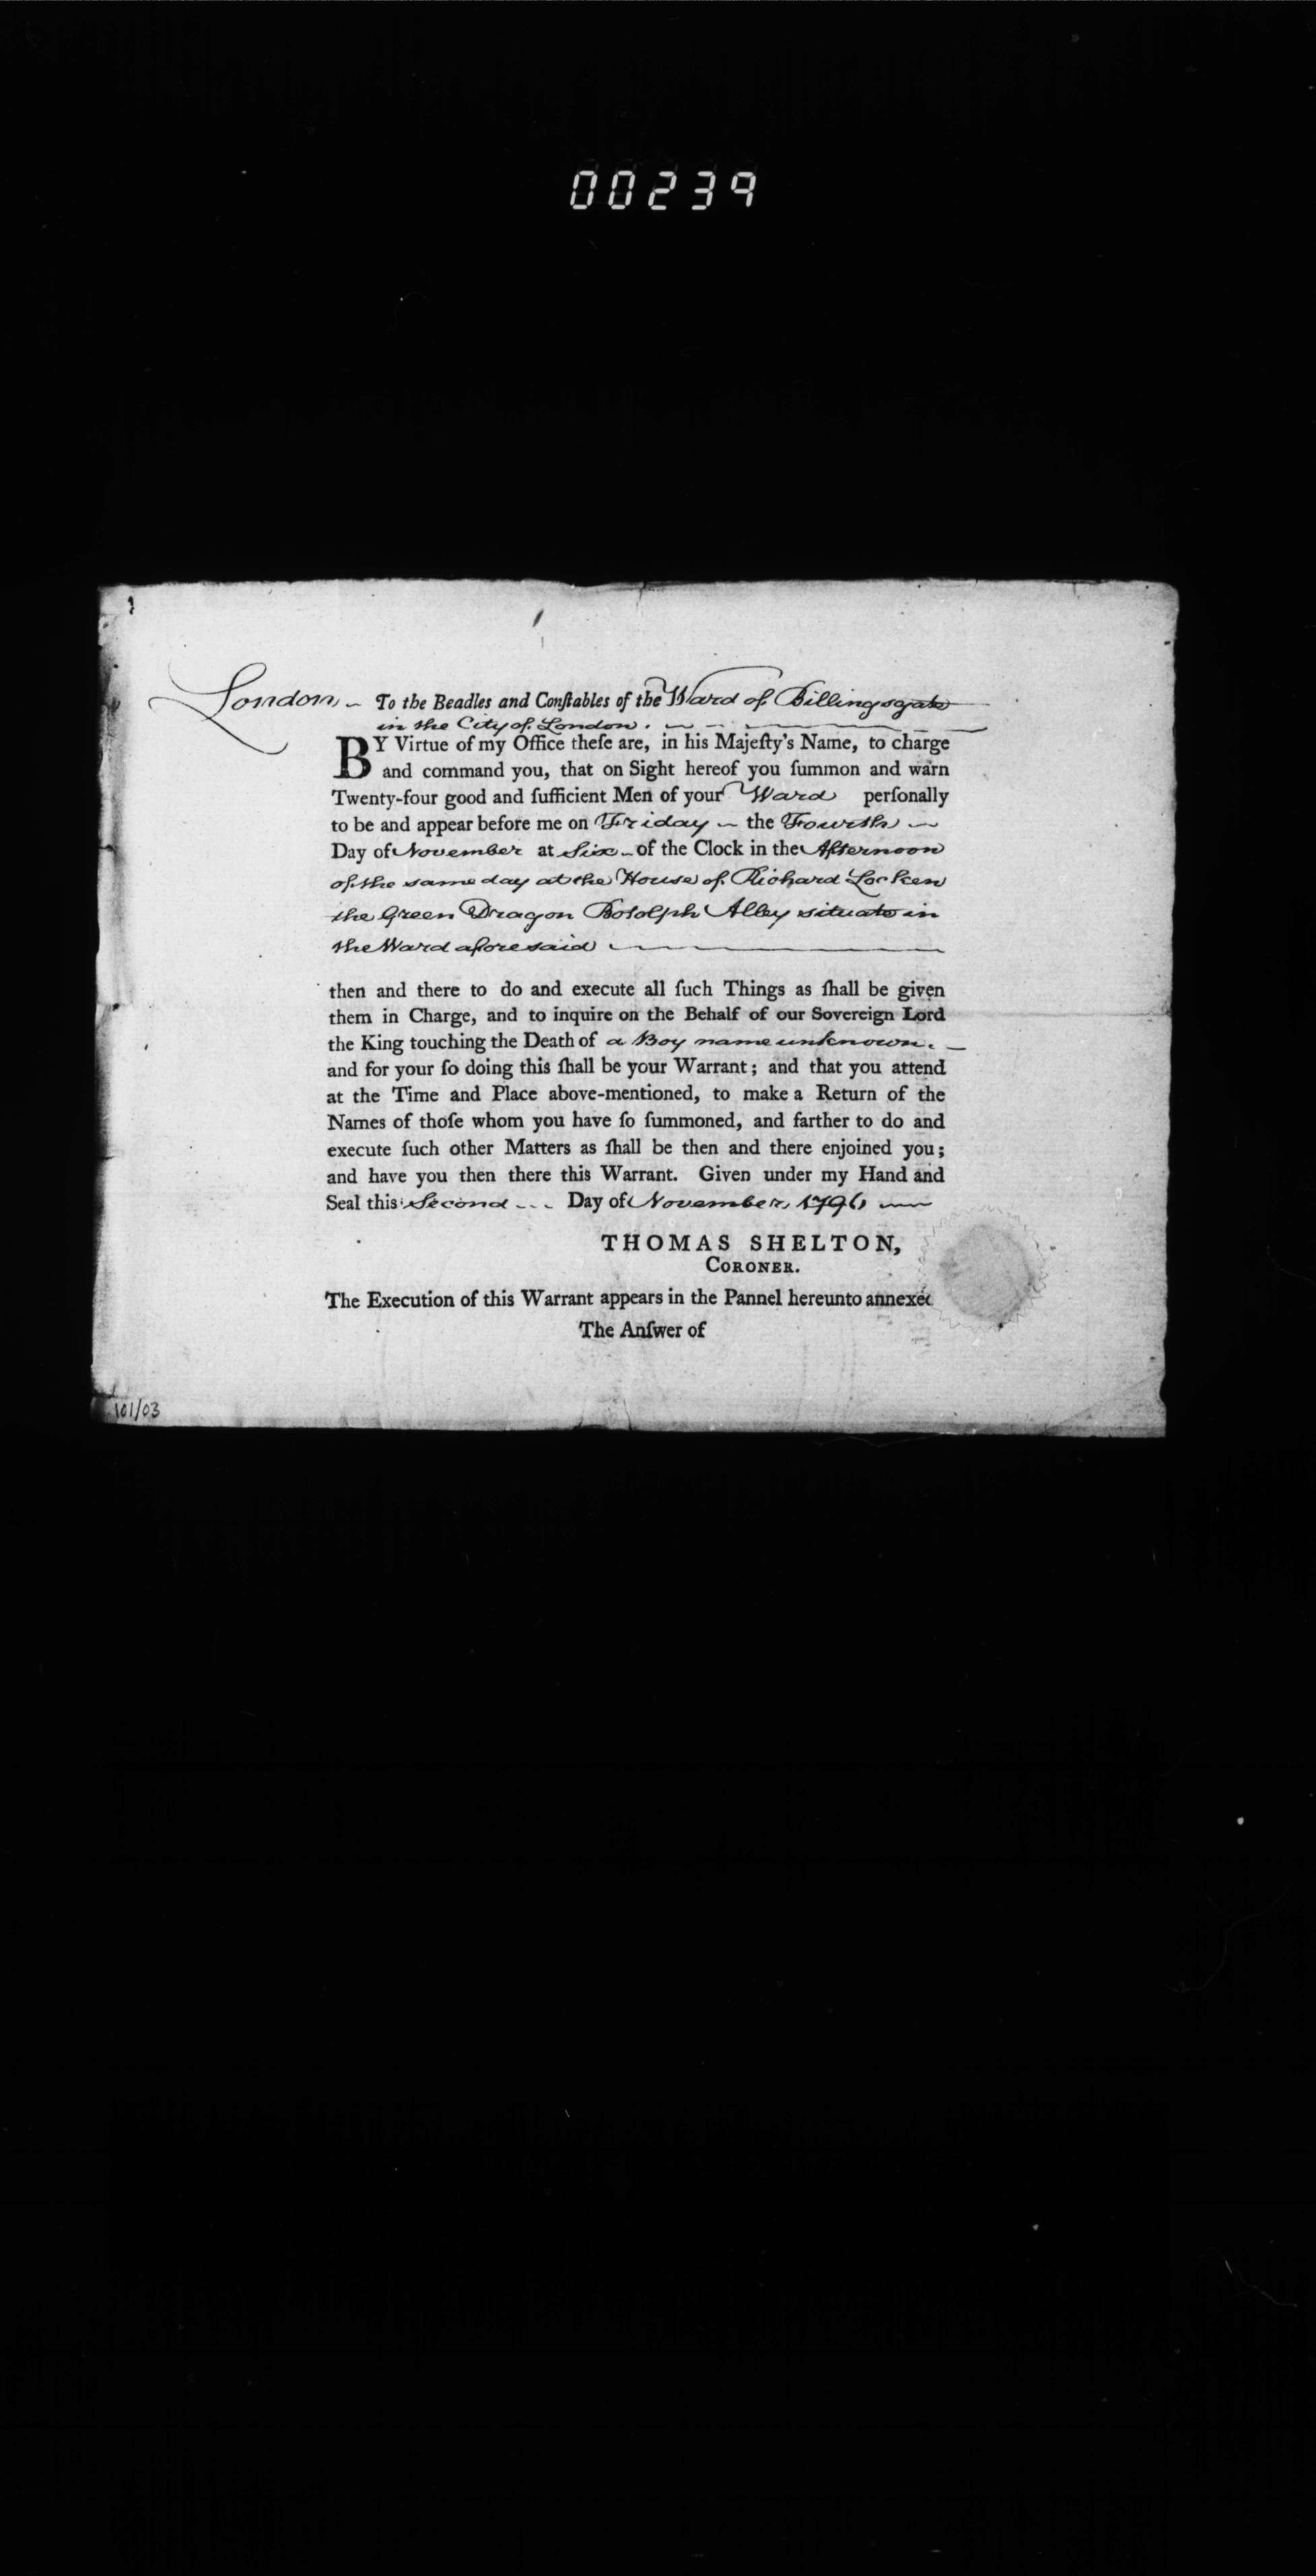 00239
London To the Beadles and Conſtables of the Ward of Billingsgate
in the City of London.
BY Virtue of my Office theſe are, in his Majeſty's Name, to charge
and command you, that on Sight hereof you ſummon and warn
Twenty-four good and ſufficient Men of your Ward perſonally
to be and appear before me on Friday the Fourth
Day of November at Six of the Clock in the Afternoon
of the same day at the House of Richard Locken
the Green Dragon Botolph Alley situate in
the Ward aforesaid
then and there to do and execute all ſuch Things as ſhall be given
them in Charge, and to inquire on the Behalf of our Sovereign Lord
the King touching the Death of a Boy name unknown.
and for your ſo doing this ſhall be your Warrant; and that you attend
at the Time and Place above-mentioned, to make a Return of the
Names of thoſe whom you have ſo ſummoned, and farther to do and
execute ſuch other Matters as ſhall be then and there enjoined you;
and have you then there this Warrant. Given under my Hand and
Seal this Second Day of November, 1796
THOMAS SHELTON,
CORONER.
The Execution of this Warrant appears in the Pannel hereunto annexed
The Anſwer of
101/03